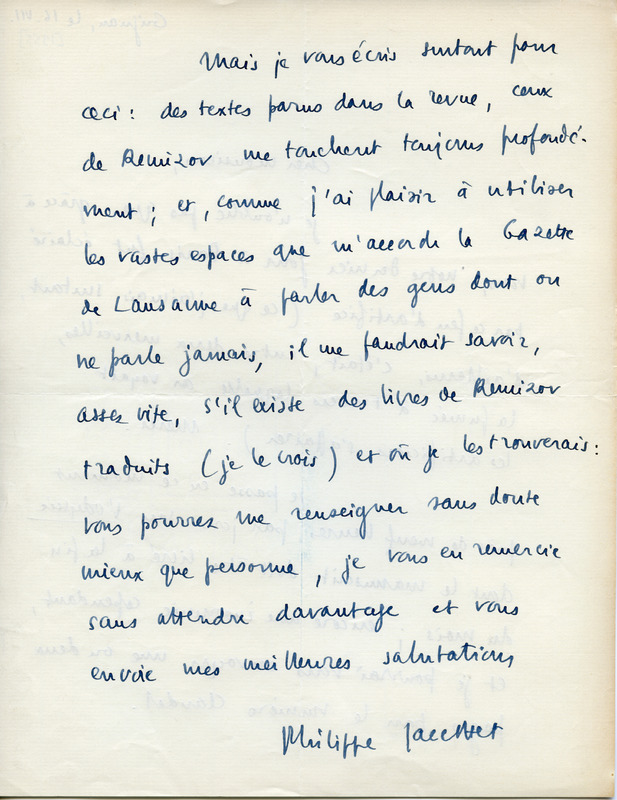 Mais je vous écris surtout pour
ceci : des textes parus dans la revue, ceux
de Remizov me touchent toujours profondé-
ment ; et, comme j'ai plaisir à utiliser
les vastes espaces que m'accorde la Gazette
de Lausanne à parler des gens dont on
ne parle jamais, il me faudrait savoir,
assez vite, s'il existe des livres de Remizov
traduits (je le crois) et où je les trouverais :
vous pourrez me renseigner sans doute
mieux que personne, je vous en remercie
sans attendre davantage et vous
envoie mes meilleures salutations
Philippe Jaccottet